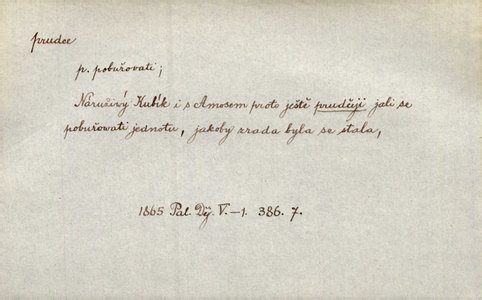 prudce
p. pobuřovati;
Náruživý Kubík i s Amosem proto ještě prudčeji jali se
pobuřovati jednotu, jakoby zrada byla se stala,
1865 Pal. Děj. V.–1. 386. 7.